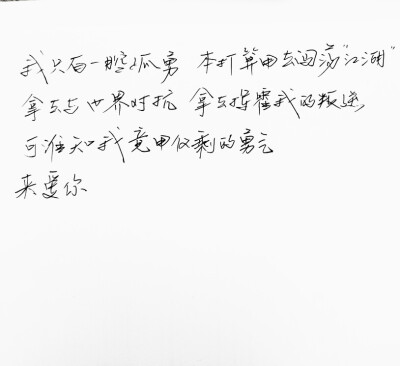 我只有一腔孤勇 本打算用去闯荡“江湖”
拿去与世界对抗 拿去挥霍我的叛逆
可谁知我竟用仅剩的勇气
来爱你